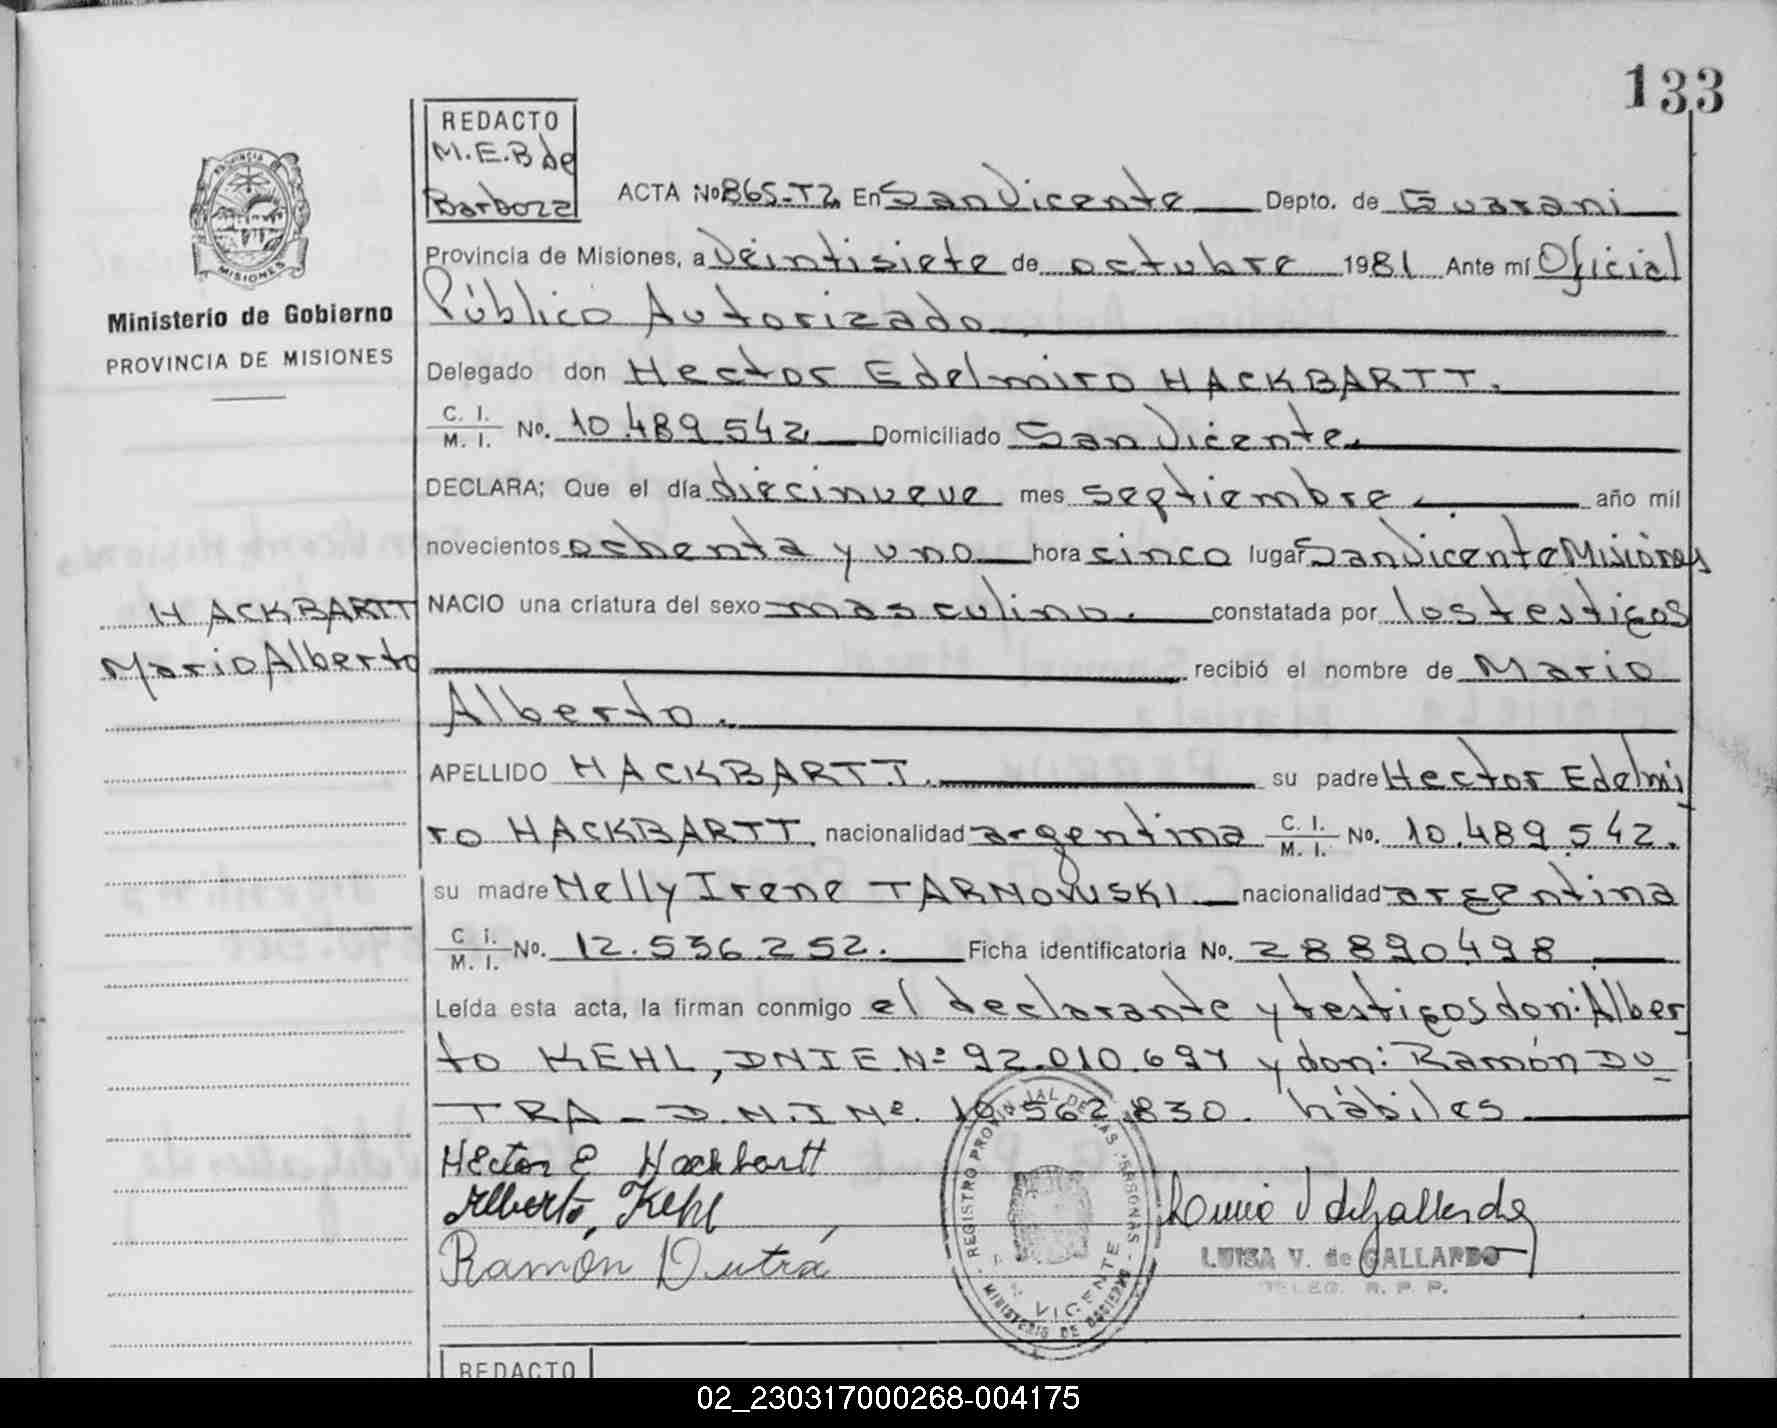 133
REDACTO
M.E.B de
Barboza
PROVINCIA
MISIONES
Ministerio de Gobierno
PROVINCIA DE MISIONES
HACKBARTT
Mario Alberto
ACTA Nº 865-T2. En San Vicente Depto. de Guarani
Provincia de Misiones, a Veintisiete de octubre 1981 Ante mí Oficial
Público Autorizado
Delegado don Hector Edelmiro HACKBARTT.
C. I. / M. I. Nº. 10.489.542 Domiciliado San Vicente.
DECLARA; Que el día diecinueve mes septiembre. año mil
novecientos ochenta y uno hora cinco lugar San Vicente Misiones
NACIO una criatura del sexo masculino. constatada por los testigos
recibió el nombre de Mario
Alberto.
APELLIDO HACKBARTT. su padre Hector Edelmi
ro HACKBARTT. nacionalidad argentina C. I. / M. I. Nº. 10.489.542.
su madre Nelly Irene TARNOWSKI nacionalidad argentina
C. I. / M. I. Nº. 12.536.252. Ficha identificatoria Nº. 28890498
Leída esta acta, la firman conmigo el declarante y testigos don: Alber
to KEHL, DNIE.Nº 92.010.697 y don: Ramón DU
TRA - D.N.I Nº. 562.830. hábiles
Hector E Hackbartt
Alberto, Kehl
Ramón Dutrá
REGISTRO PROVINCIAL DE LAS PERSONAS
VICENTE
MINISTERIO DE GOBIERNO
LUISA V. de GALLARDO
DELEG. R. P. P.
REDACTO
02_230317000268-004175